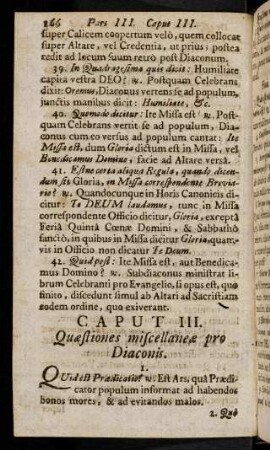 266 Pars III. Caput III.
super Calicem coopertum velò, quem collocat
super Altare, vel Credentia, ut prius: postea
redit ad lecum suum retro post Diaconum.
39. In Quadragesima quis dicit: Humiliate
capita vestra DEO? ℞. Postquam Celebrans
dixit: Oremus, Diaconus vertens se ad populum,
junctis manibus dicit: Humiliate, &c.
40. Quomodo dicitur: Ite Missa est? ℞. Post-
quam Celebrans verrit se ad populum, Dia-
conus cum eo versus ad populum cantat: Ite
Missa est, dum Gloria dictum est in Missa, vel
Benedicamus Domino, facie ad Altare versâ.
41. Estne certa aliqua Regula, quando dicen-
dum sit Gloria, in Missa correspondente Brevia-
rio? ℞. Quandocunque in Horis Canonicis di-
citur: Te DEUM laudamus, tunc in Missa
correspondente Officio dicitur, Gloria, exceptâ
Feriâ Quintâ Cœnæ Domini, & Sabbathò
sanctò, in quibus in Missa dicitur Gloria, quam-
vis in Officio non dicatur Te Deum.
42. Quid post: Ite Missa est, aut Benedica-
mus Domino? ℞. Subdiaconus ministrat li-
brum Celebranti pro Evangelio, si opus est, quo
finito, discedunt simul ab Altari ad Sacristiam
eodem ordine, quo exiverant.
CAPUT III.
Quæstiones miscellaneæ pro
Diaconis.
1.
Quid est Prædicatio? ℞. Est Ars, quâ Prædi-
cator populum informat ad habendos
bonos mores, & ad evitandos malos.
2. Quò